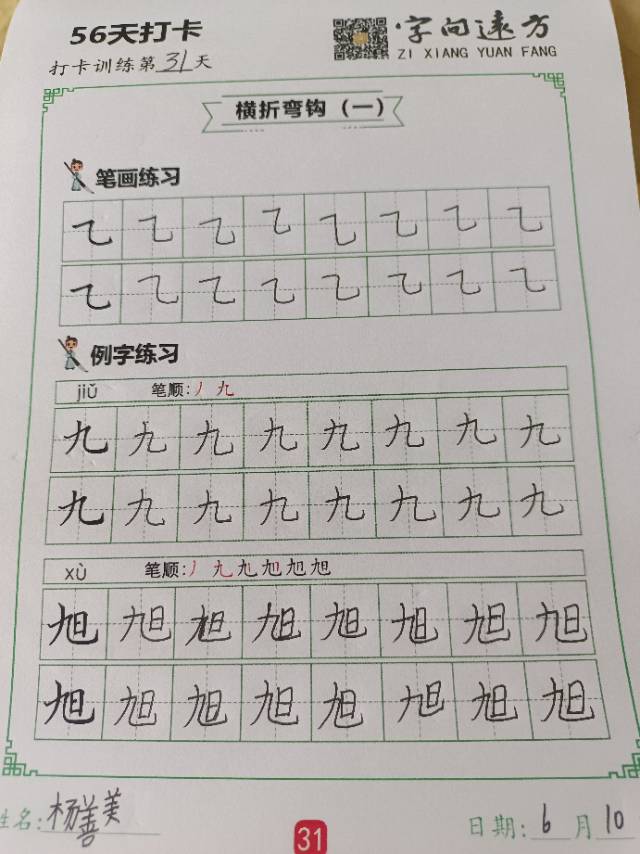 56天打卡
字向远方
打卡训练第31天
ZI XIANG YUAN FANG
横折弯钩(一)
笔画练习
乙 乙 乙 乙 乙 乙 乙 乙
乙 乙 乙 乙 乙 乙 乙 乙
例字练习
jiǔ 笔顺:丿九
九 九 九 九 九 九 九 九
九 九 九 九 九 九 九 九
xù 笔顺:丿九
旭 旭 旭 旭 旭 旭 旭 旭
旭 旭 旭 旭 旭 旭 旭 旭
姓名:杨善美
31
日期:6月10